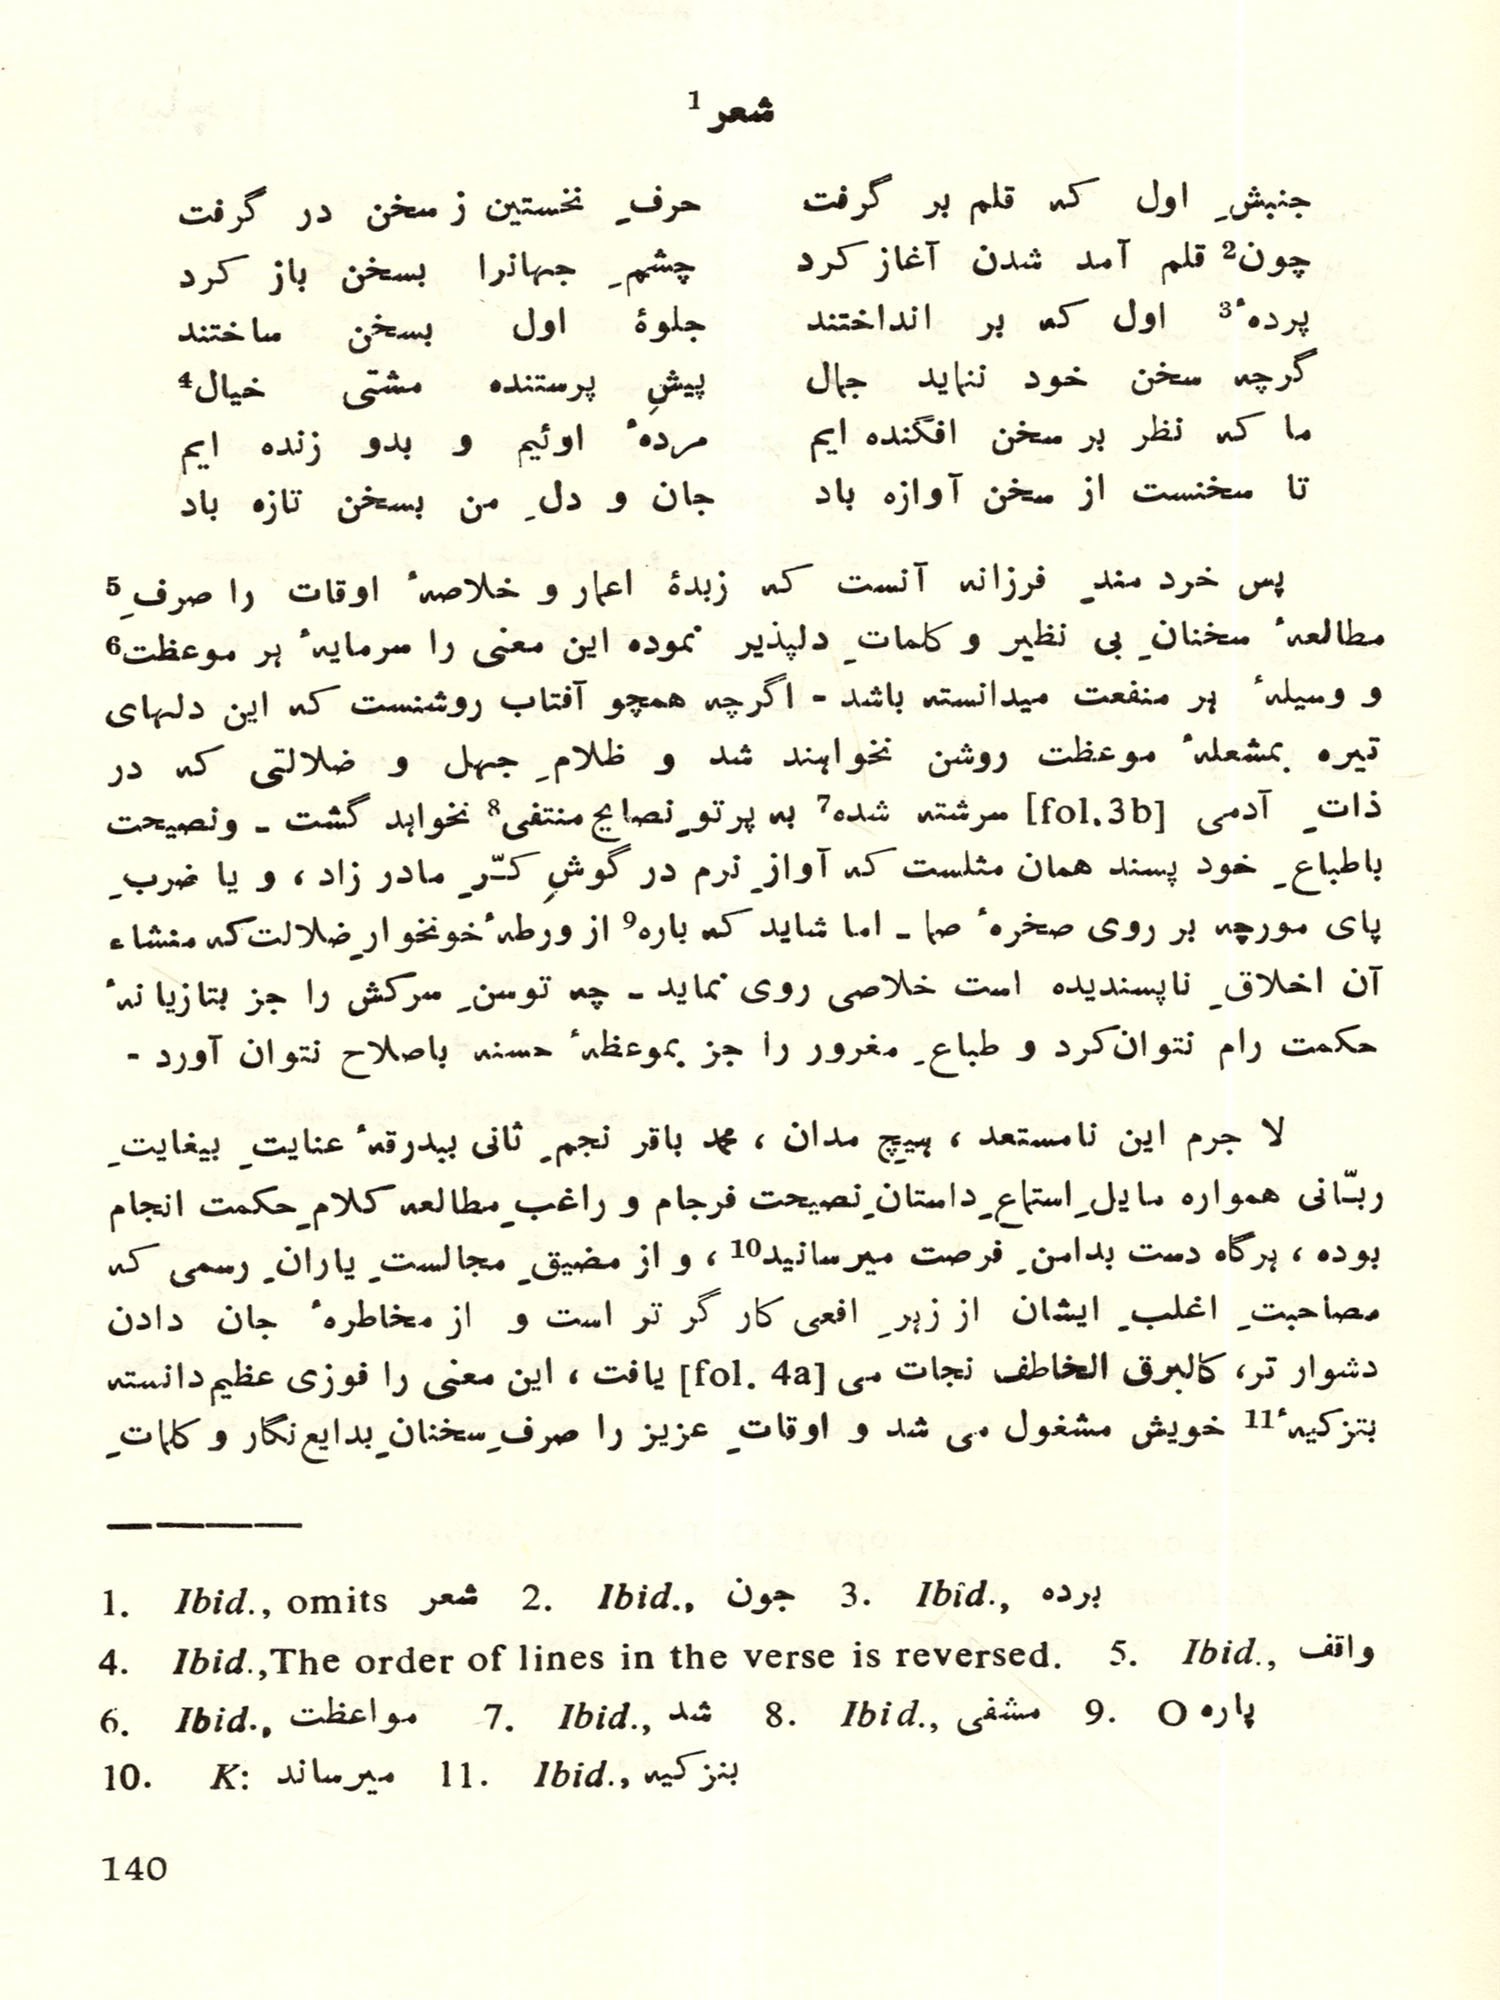 شعر 1
جنبشِ اول که قلم بر گرفت حرفِ نخستین ز سخن در گرفت
چون2 قلم آمد شدن آغاز کرد چشمِ جہانرا بسخن باز کرد
پردهٔ3 اول که بر انداختند جلوۂ اول بسخن ساختند
گرچہ سخن خود ننماید جمال پیشِ پرستنده مشتی خیال4
ما کہ نظر بر سخن افگنده ایم مردهٔ اوئیم و بدو زنده ایم
تا سخنست از سخن آوازه باد جان و دلِ من بسخن تازه باد
پس خرد مندِ فرزانہ آنست کہ زبدۂ اعمار و خلاصہٴ اوقات را صرفِ5
مطالعہٴ سخنانِ بی نظیر و کلماتِ دلپذیر نموده این معنی را سرمایہٴ ہر موعظت6
و وسیلہٴ ہر منفعت میدانستہ باشد - اگرچہ همچو آفتاب روشنست کہ این دلہای
تیره بمشعلہٴ موعظت روشن نخواہند شد و ظلامِ جہل و ضلالتی کہ در
ذاتِ آدمی [fol.3b] سرشتہ شده7 بہ پرتوِ نصایح منتفی8 نخواہد گشت - ونصیحت
باطباعِ خود پسند همان مثلست کہ آوازِ نرم در گوشِ کرِّ مادر زاد ، و یا ضربِ
پای مورچہ بر روی صخرهٴ صما - اما شاید کہ باره9 از ورطہٴ خونخوارِ ضلالت کہ منشاء
آن اخلاقِ ناپسندیده است خلاصی روی نماید - چہ توسنِ سرکش را جز بتازیانہٴ
حکمت رام نتوان کرد و طباعِ مغرور را جز بموعظہٴ حسنہ باصلاح نتوان آورد -
لا جرم این نامستعد ، ہیچ مدان ، محمد باقر نجمِ ثانی ببدرقہٴ عنایتِ بیغایتِ
ربّانی همواره مایلِ استماعِ داستانِ نصیحت فرجام و راغبِ مطالعہ کلامِ حکمت انجام
بوده ، ہرگاه دست بدامنِ فرصت میرسانید10 ، و از مضیقِ مجالستِ یارانِ رسمی کہ
مصاحبتِ اغلبِ ایشان از زہرِ افعی کار گر تر است و از مخاطرهٴ جان دادن
دشوار تر، کالبرق الخاطف نجات می [fol. 4a] یافت ، این معنی را فوزی عظیم دانستہ
بتزکیہٴ11 خویش مشغول می شد و اوقاتِ عزیز را صرفِ سخنانِ بدایع نگار و کلماتِ
1. Ibid., omits شعر 2. Ibid., جون 3. Ibid., برده
4. Ibid.,The order of lines in the verse is reversed. 5. Ibid., واقف
6. Ibid., مواعظت 7. Ibid., شد 8. Ibid., مشفی 9. O پاره
10. K: میرساند 11. Ibid., بنزکیہ
140